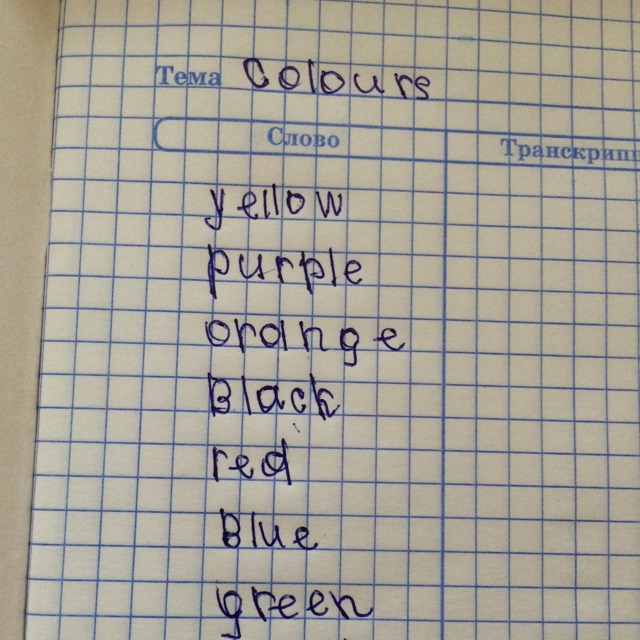 Тема Colours
Слово Транскрипц
yellow
purple
orange
Black
red
Blue
green